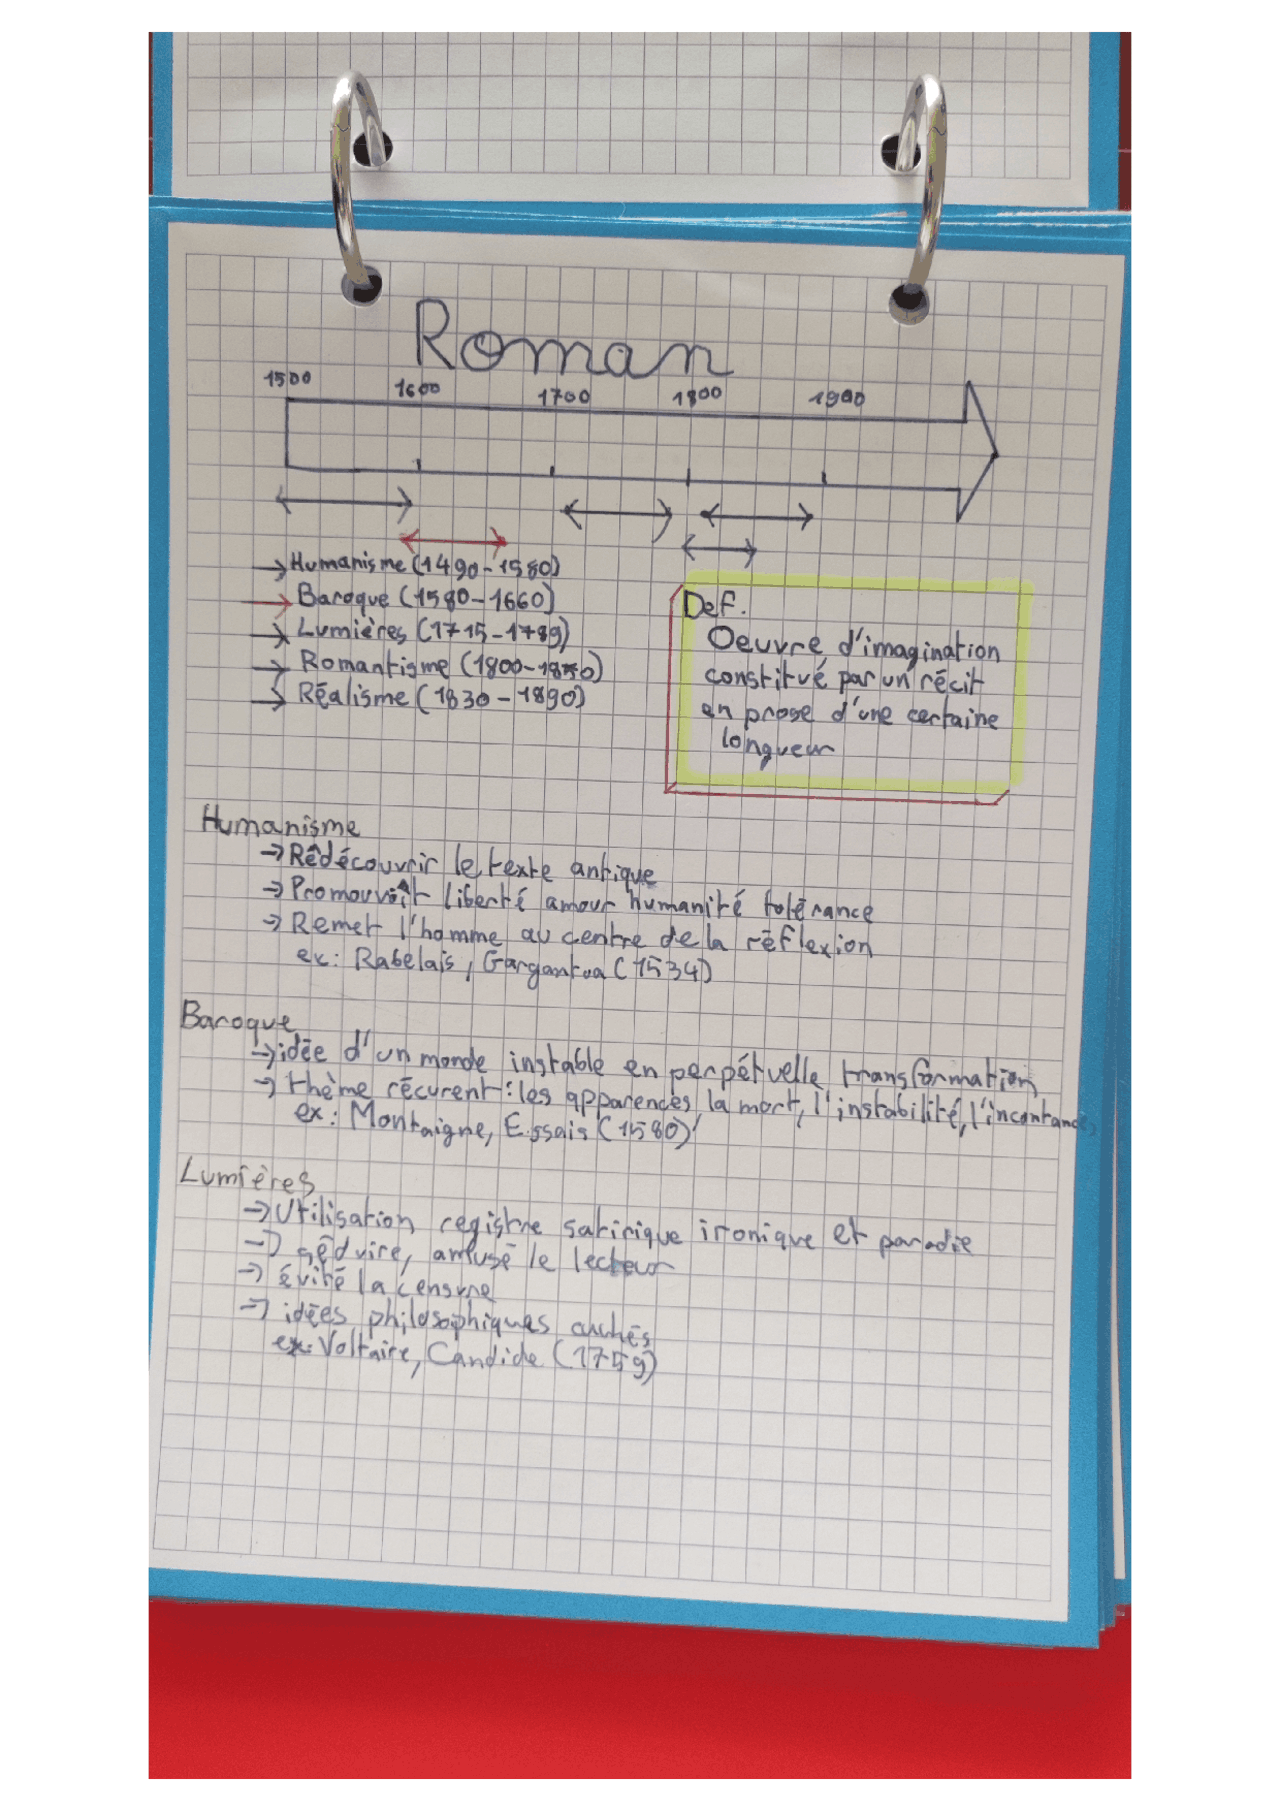 Roman
1500 1600 1700 1800 1900
→ Humanisme (1490-1580)
→ Baroque (1580-1660)
→ Lumières (1715-1789)
→ Romantisme (1800-1850)
→ Réalisme (1830-1890)
Def.
Oeuvre d'imagination
constitué par un récit
en prose d'une certaine
longueur
Humanisme
→ Rédécouvrir le texte antique
→ Promouvoît liberté amour humanité tolérance
→ Remet l'homme au centre de la réflexion
ex: Rabelais, Gargantua (1534)
Baroque
→ idée d'un monde instable en perpétuelle transformation
→ thème récurent: les apparences, la mort, l'instabilité, l'incontance
ex: Montaigne, Essais (1580)
Lumières
→ Utilisation registre satirique ironique et parodie
→ séduire, amusé le lecteur
→ évité la censure
→ idées philosophiques cachés
ex: Voltaire, Candide (1759)